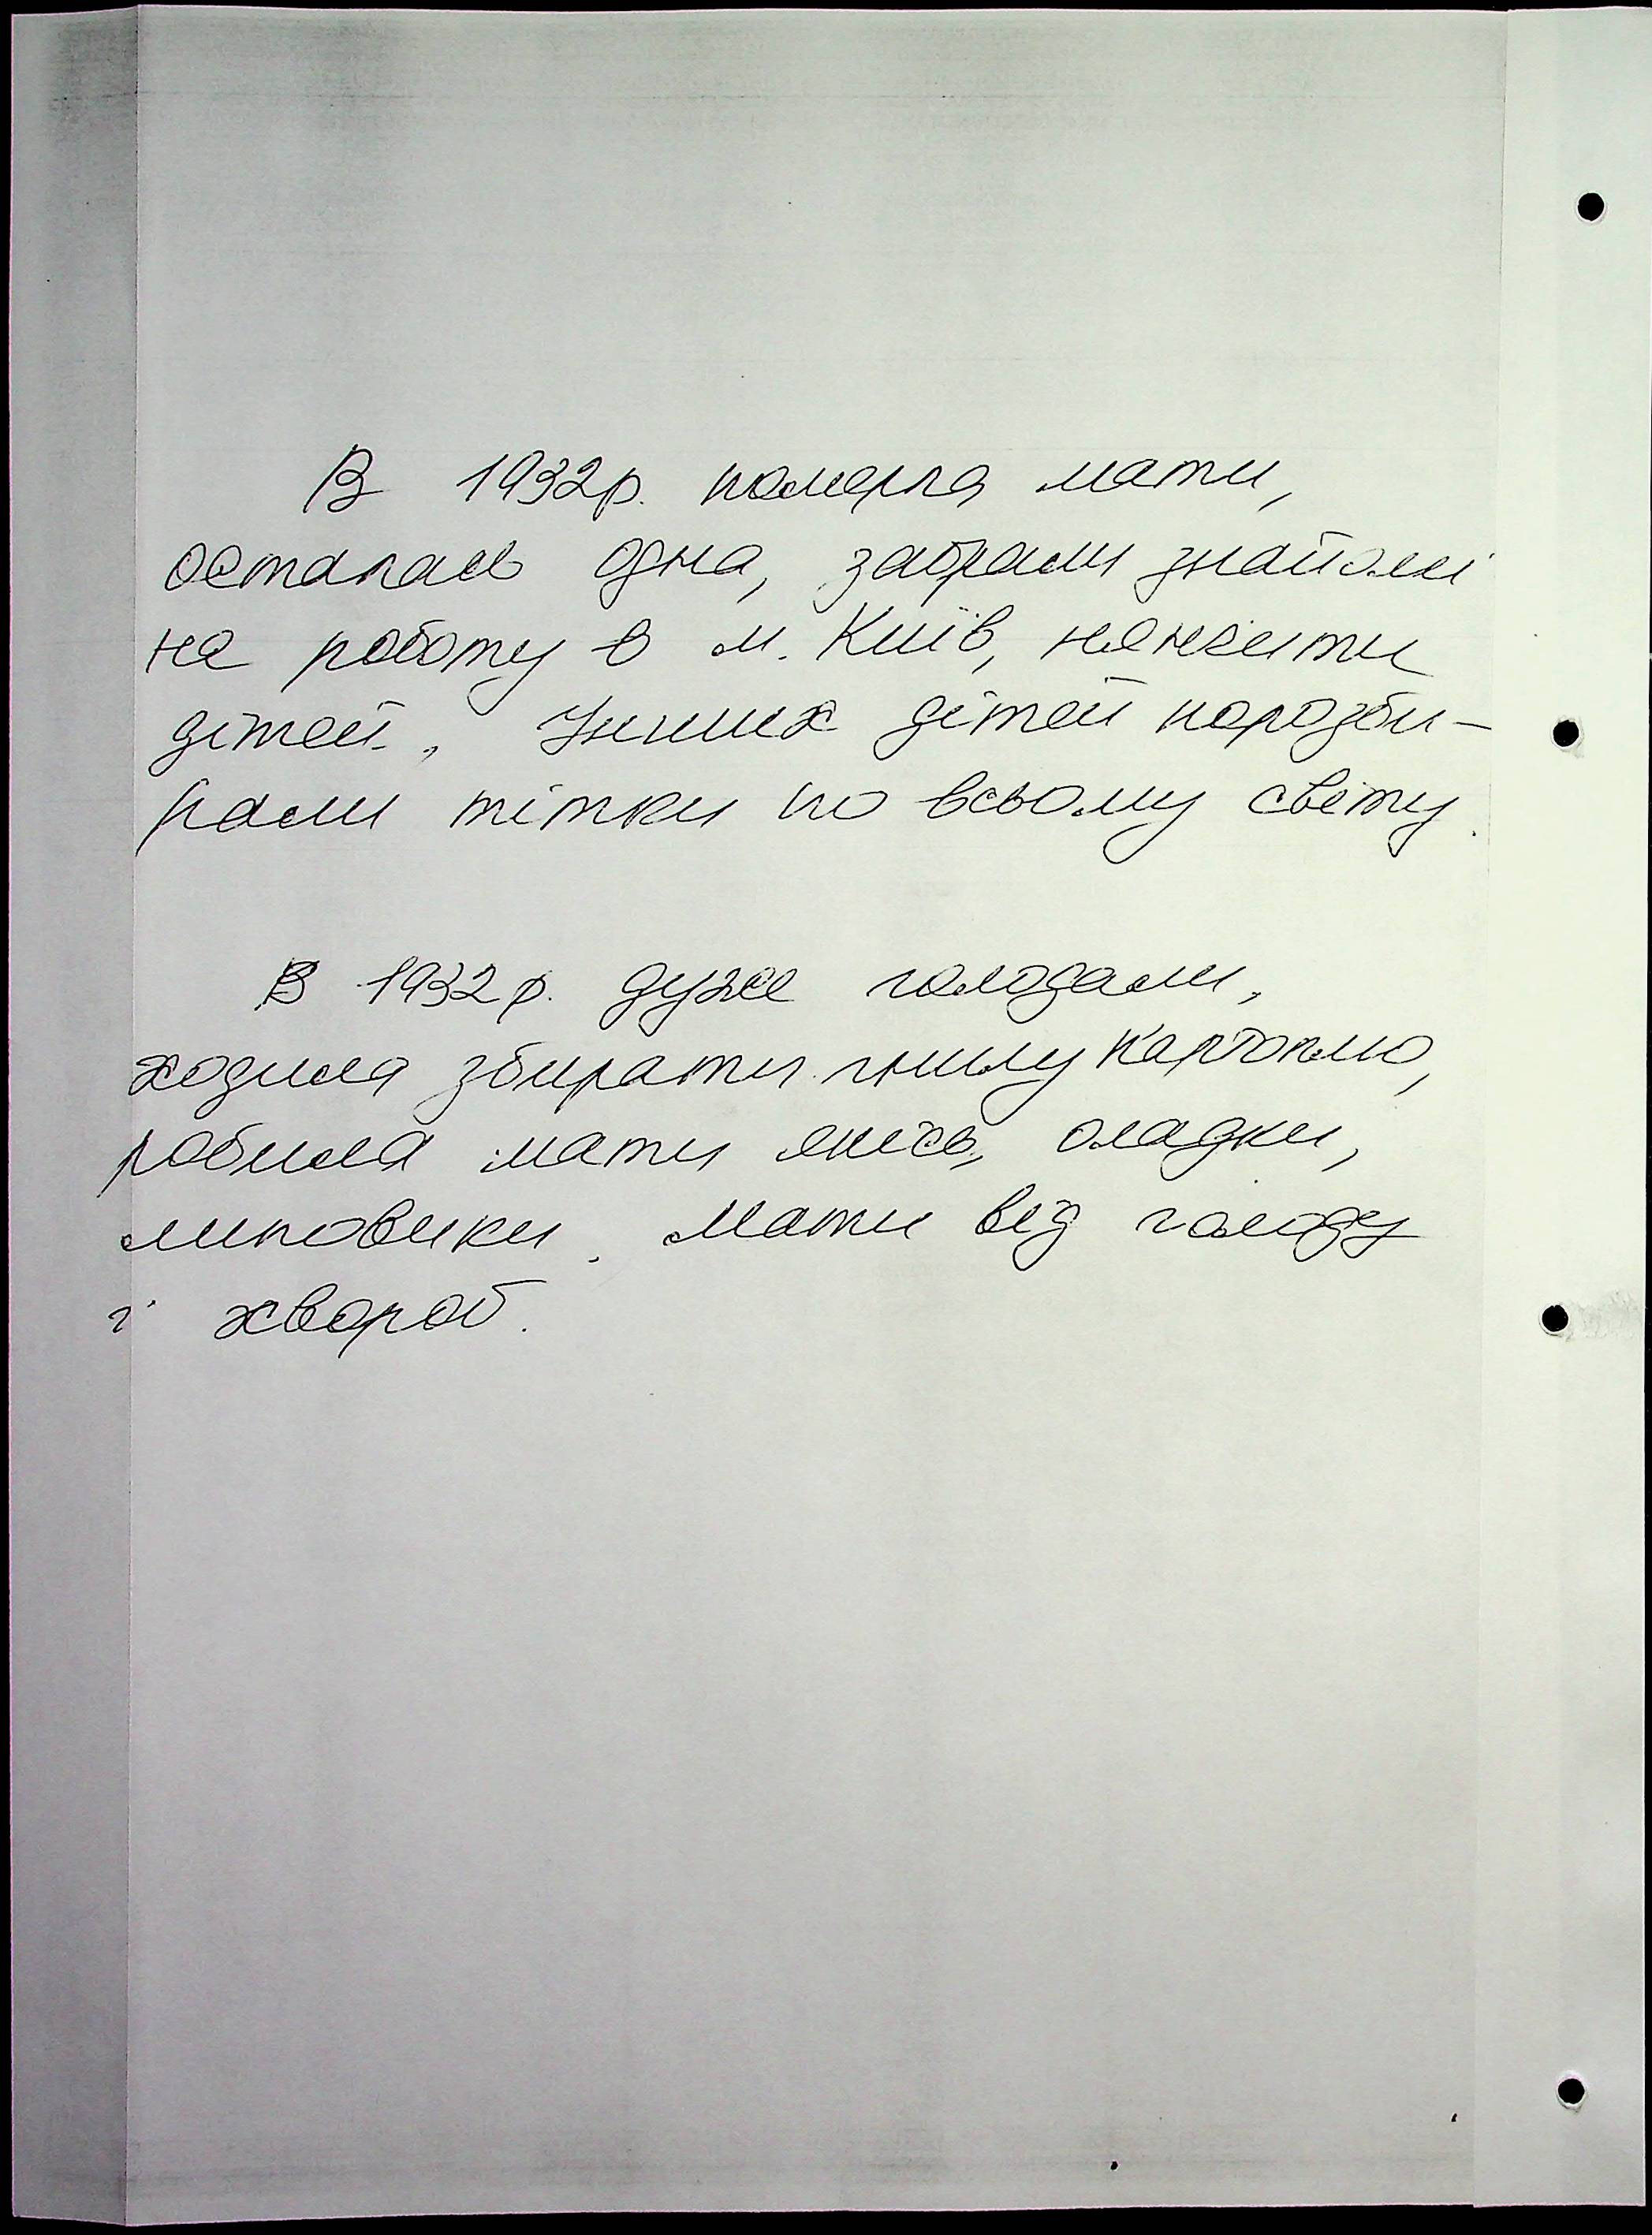 В 1932р. померла мати,
осталась одна, забрали знайомі
на роботу в м. Київ, няньчити
дітей. Інших дітей порозби-
рали тітки по всьому світу.
В 1932 р. дуже голодали,
ходила збирати гнилу картоплю,
робила мати якісь, оладки,
липовики. Мати від голоду
і хвороб.